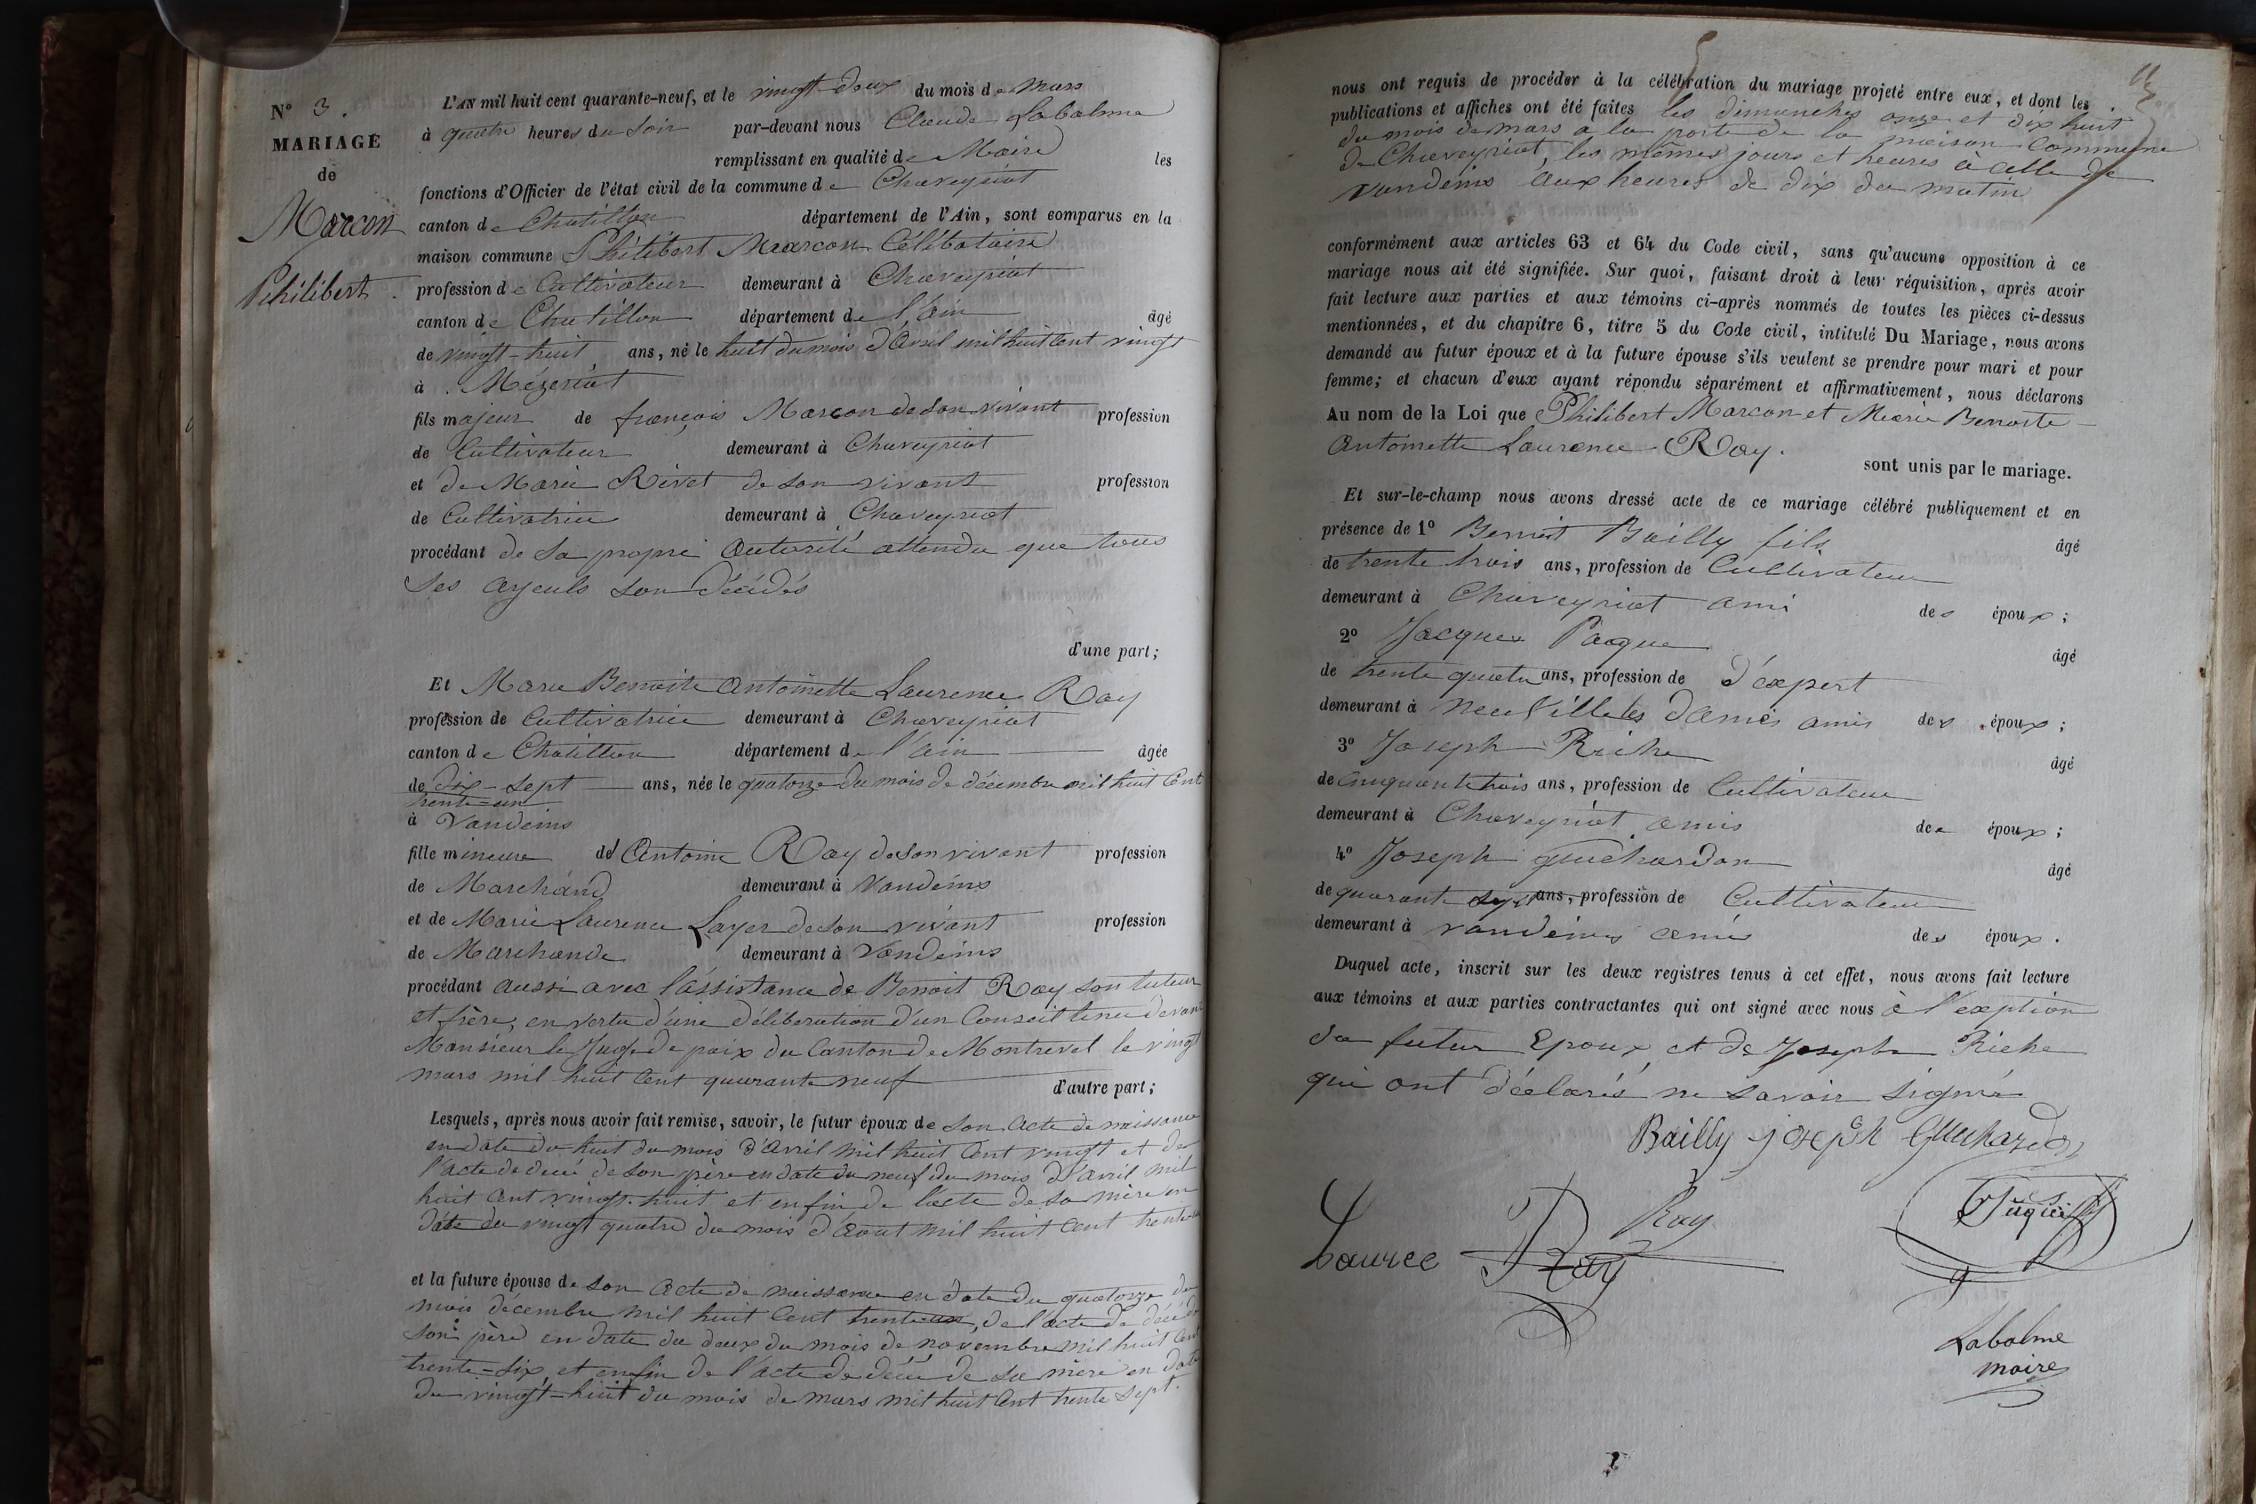 N° 3.
MARIAGE
de
Marcon
Philibert.
L'AN mil huit cent quarante-neuf, et le vingt-deux du mois de mars
à quatre heures du soir par-devant nous Claude Labalme
remplissant en qualité de Maire les
fonctions d'Officier de l'état civil de la commune de Chaveyriat
canton de Chatillon département de l'Ain, sont comparus en la
maison commune Philibert Marcon Célibataire
profession de Cultivateur demeurant à Chaveyriat
canton de Chatillon département de l'ain âgé
de vingt-huit ans, né le huit du mois d'Avril mil huit cent vingt
à Mézeriat
fils majeur de françois Marcon de son vivant profession
de Cultivateur demeurant à Chaveyriat
et de Marie Rivet de son vivant profession
de Cultivatrice demeurant à Chaveyriat
procédant de sa propre autorité attendu que tous
ses ayeuls son décédés
d'une part;
Et Marie Benoite Antoinette Laurence Ray
profession de Cultivatrice demeurant à Chaveyriat
canton de Chatillon département de l'ain âgée
de dix-sept ans, née le quatorze du mois de décembre mil huit Cent
trente-un
à Vandeins
fille mineure de Antoine Ray de son vivant profession
de Marchand demeurant à Vandeins
et de Marie Laurence Layer de son vivant profession
de Marchande demeurant à Vandeins
procédant aussi avec l'assistance de Benoit Ray son tuteur
et frère, en vertu d'une délibération d'un Conseil tenu devant
Monsieur le Juge de paix du Canton de Montrevel le vingt
mars mil huit Cent quarante neuf d'autre part;
Lesquels, après nous avoir fait remise, savoir, le futur époux de son acte de naissance
en date du huit du mois d'avril mil huit Cent vingt et de
l'acte de décé de son père en date du neuf du mois d'avril mil
huit Cent vingt-huit et enfin de l'acte de sa mère en
date du vingt quatre du mois d'avout mil huit Cent
et la future épouse de son acte de naissance en date du quatorze du
mois décembre mil huit Cent trente un, de l'acte de décé de
son père en date du deux du mois de novembre mil huit Cent
trente-six, et enfin de l'acte de décé de sa mère en date
du vingt-huit du mois de mars mil huit Cent trente sept.
nous ont requis de procéder à la célébration du mariage projeté entre eux, et dont les
publications et affiches ont été faites les dimanches onze et dix huit
du mois de mars a la porte de la maison Commune
de Chaveyriat, les mêmes jours et heures à celle de
Vandeins aux heures de dix du matin
conformément aux articles 63 et 64 du Code civil, sans qu'aucune opposition à ce
mariage nous ait été signifiée. Sur quoi, faisant droit à leur réquisition, après avoir
fait lecture aux parties et aux témoins ci-après nommés de toutes les pièces ci-dessus
mentionnées, et du chapitre 6, titre 5 du Code civil, intitulé Du Mariage, nous avons
demandé au futur époux et à la future épouse s'ils veulent se prendre pour mari et pour
femme; et chacun d'eux ayant répondu séparément et affirmativement, nous déclarons
Au nom de la Loi que Philibert Marcon et Marie Benoite
Antoinette Laurence Ray.
sont unis par le mariage.
Et sur-le-champ nous avons dressé acte de ce mariage célébré publiquement et en
présence de 1° Benoit Bailly fils âgé
de trente trois ans, profession de Cultivateur
demeurant à Chaveyriat ami des époux;
2° Jacques âgé
de trente quatre ans, profession de d'expert
demeurant à Neuville les dames amis des époux;
3° Joseph Riche âgé
de Cinquante trois ans, profession de Cultivateur
demeurant à Chaveyriat amis des époux;
4° Joseph guichardon âgé
de quarante sept ans, profession de Cultivateur
demeurant à vandeins amis des époux.
Duquel acte, inscrit sur les deux registres tenus à cet effet, nous avons fait lecture
aux témoins et aux parties contractantes qui ont signé avec nous à l'exeption
du futur Epoux et de Joseph Riche
qui ont déclarés ne savoir signé
Bailly joseph Guichardon
Ray
Laurce Ray
Labalme
maire